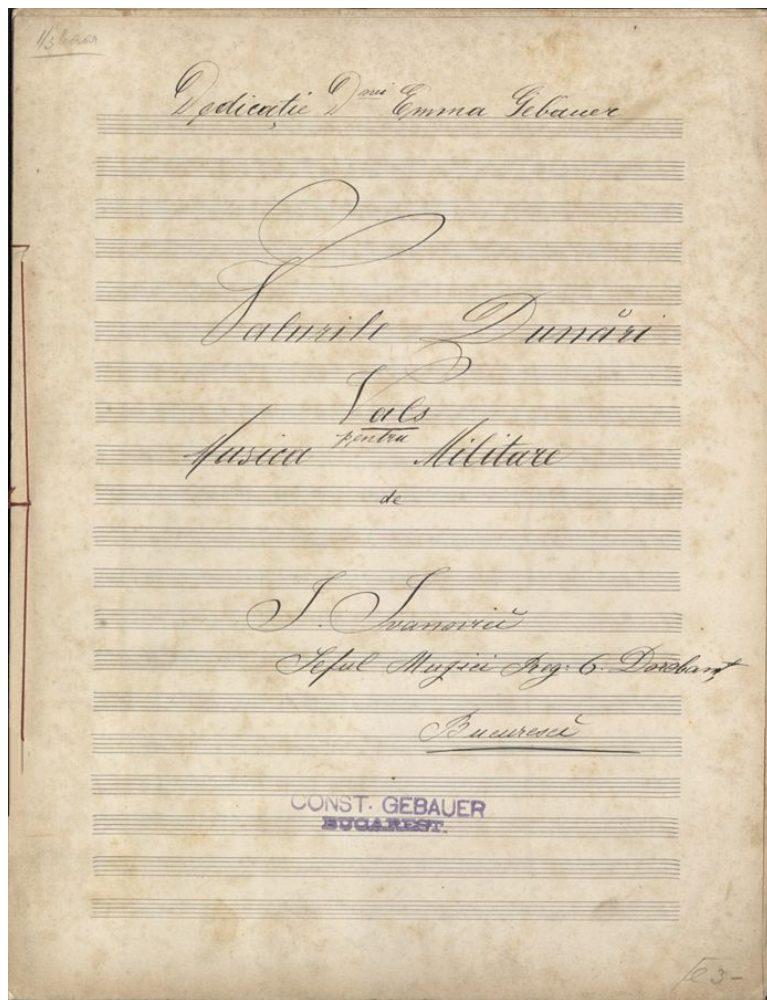 Dedicație Dnei Emma Gebauer
Valurile Dunări
Vals
pentru
Musica Militare
de
I. Ivanovici
Șeful Muzici Reg: 6. Dorobanț
Bucuresci
CONST. GEBAUER
BUCAREST.
3-